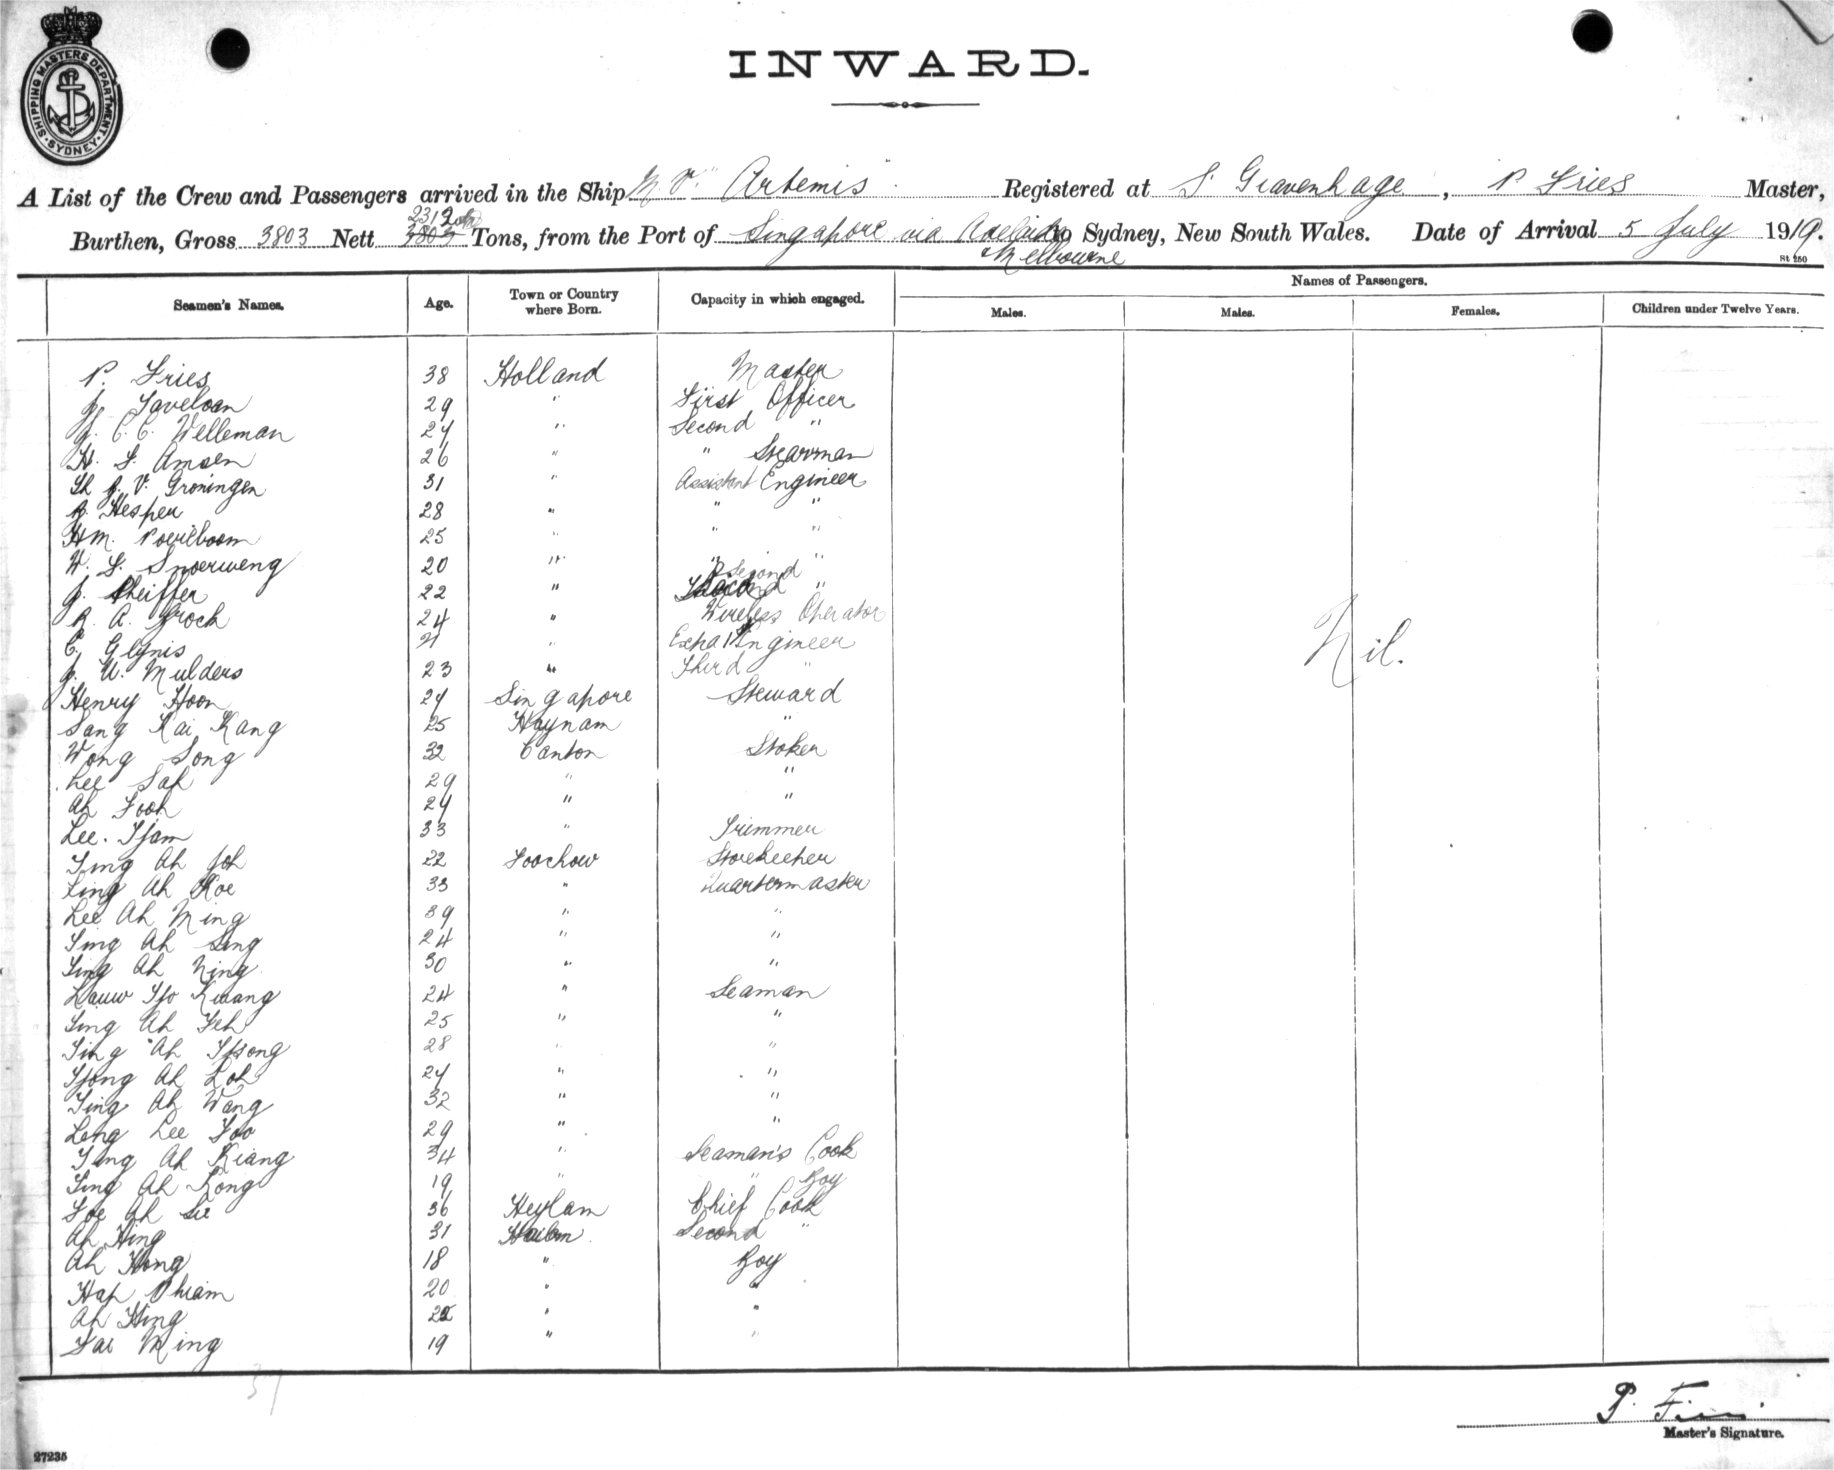 SHIPPING MASTERS DEPARTMENT. SYDNEY
INWARD.
A List of the Crew and Passengers arrived in the Ship M.V. "Artemis" Registered at S'Gravenhage, P. Fries Master,
2312
Burthen, Gross 3803 Nett 3803 Tons, from the Port of Singapore via Adelaide to Sydney, New South Wales. Date of Arrival 5 July 1919.
& Melbourne
St 250
Names of Passengers.
Seamen's Names. Age. Town or Country where Born. Capacity in which engaged. Males. Males. Females. Children under Twelve Years.
P. Fries 38 Holland Master
J. Taveloan 29 " First Officer
J. C. C. Welleman 24 " Second "
H. F. Amsen 26 " " Stearman
Th J. V. Groningen 31 " Assistant Engineer
J. Hesper 28 " " "
HM. Poeilboom 25 " " "
W. F. Snoerweng 20 " " "
J. Pheiffer 22 " Second "
R. A. Grock 24 " Wireless Operator
C. Glynis 21 " Extra Engineer
J. W. Mulders 23 " Third "
Nil.
Henry Hoon 24 Singapore Steward
Sang Kai Kang 25 Haynam "
Wong Song 32 Canton Stoker
Lee Sah 29 " "
Ah Fook 24 " "
Lee. Tjam 33 " Trimmer
Ting Ah Joh 22 Foochow Storekeeper
Ling Ah Koe 33 " Quartermaster
Lee Ah Ming 39 " "
Ting Ah Sing 24 " "
Ting Ah Ning 30 " "
Lauw Tjo Kwang 24 " Seaman
Ting Ah Feh 25 " "
Ting Ah Tjsong 28 " "
Tjong Ah Loh 24 " "
Ting Ah Wang 32 " "
Leng Lee Foo 29 " "
Tang Ah Kiang 34 " Seaman's Cook
Ting Ah Kong 19 " " Boy
Foe Ah Sie 36 Heylam Chief Cook
Ah Hing 31 Hailam Second "
Ah Hong 18 " Boy
Hap Phiam 20 " "
Ah Hing 22 " "
Fai Ming 19 " "
37
P. Fries
Master's Signature.
27235